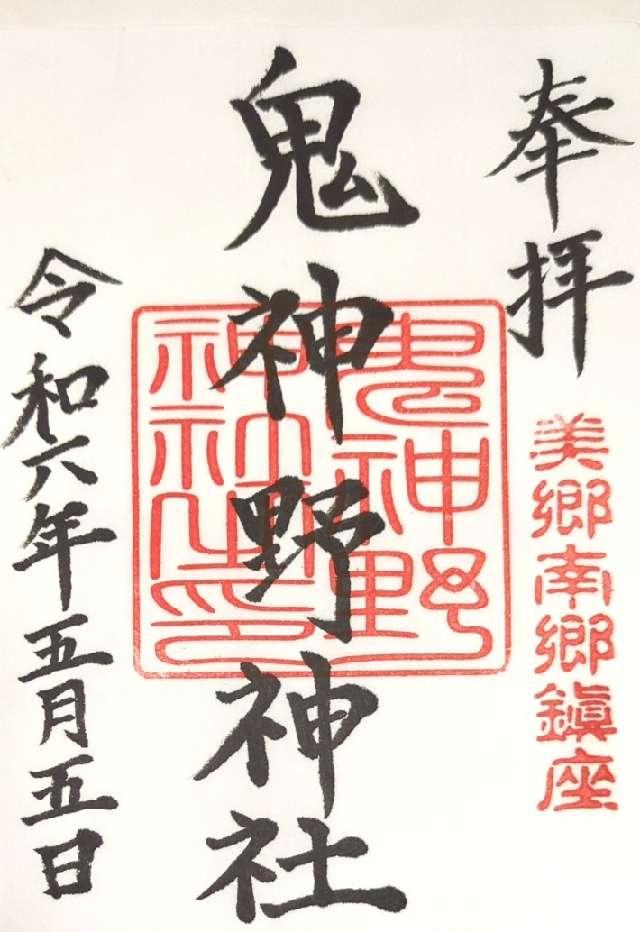 奉拝
美郷南郷鎮座
鬼神野神社
鬼神野神社之印
令和六年五月五日